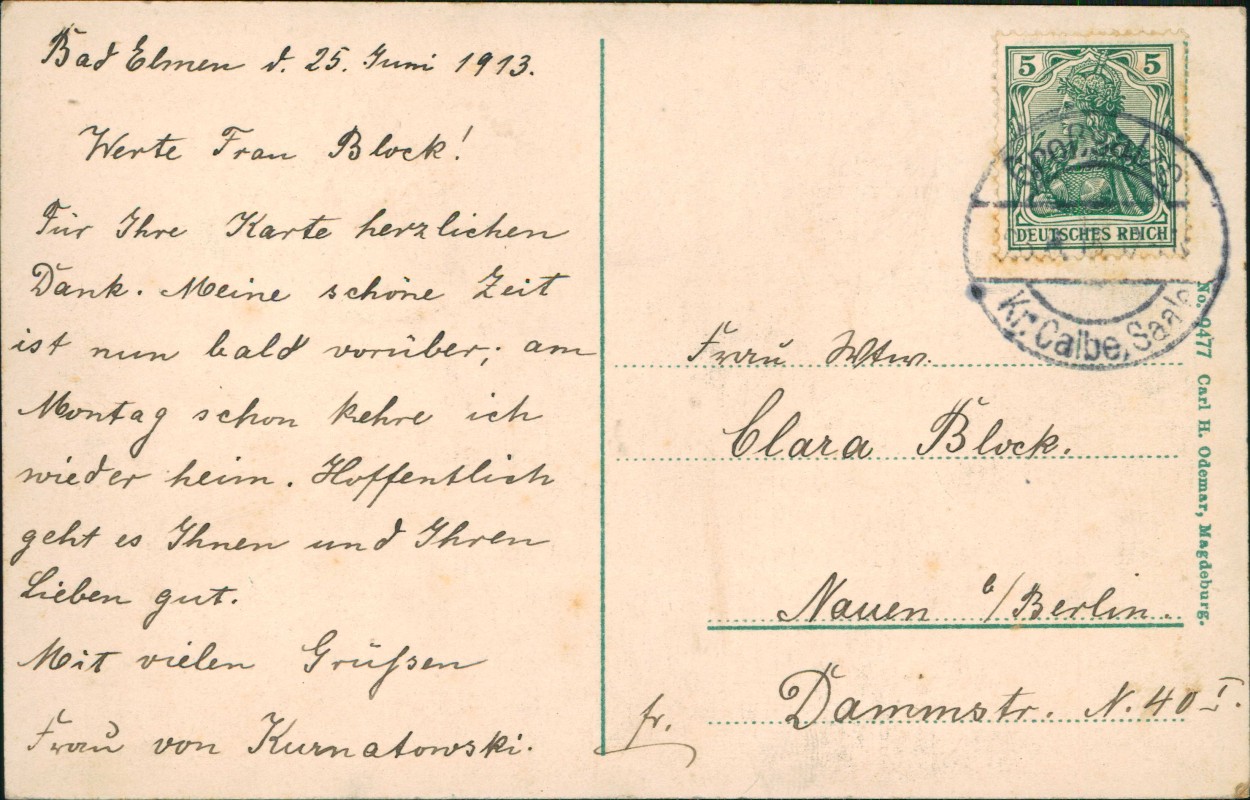 Bad Elmen d. 25. Juni 1913.
Werte Frau Block!
Für Ihre Karte herzlichen
Dank. Meine schöne Zeit
ist nun bald vorüber; am
Montag schon kehre ich
wieder heim. Hoffentlich
geht es Ihnen und Ihren
Lieben gut.
Mit vielen Grüßen
Frau von Kurnatowski.
5 5
DEUTSCHES REICH
Kr. Calbe, Saale
Frau Wtw.
Clara Block.
Nauen b/Berlin.
fr. Dammstr. N. 40 I.
No. 9477 Carl H. Odemar, Magdeburg.